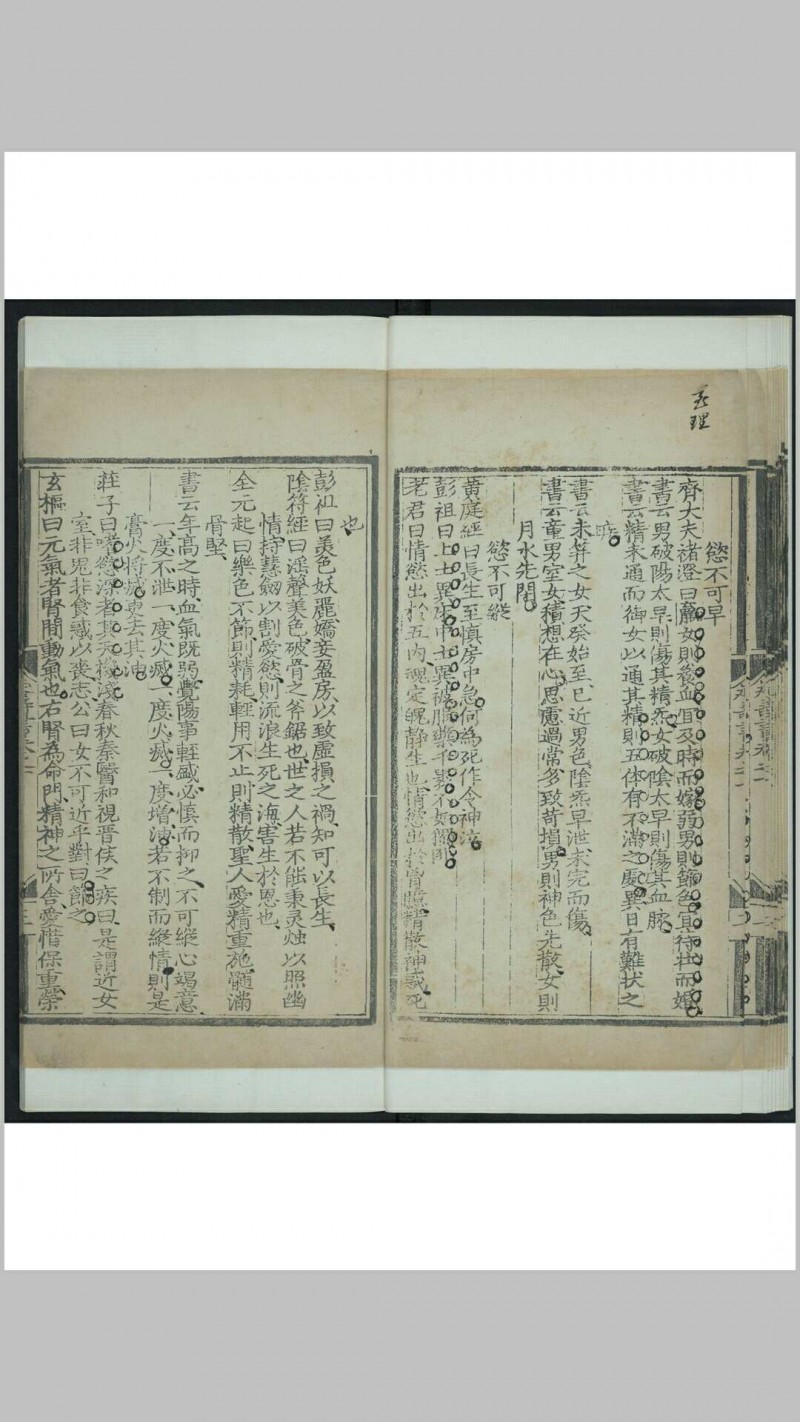 至理
慾不可早
齊大夫禇澄曰羸女則養血宜及時而嫁弱男則節色宜待壯而婚
書云男破陽太早則傷其精炁女破陰太早則傷其血脉
書云精未通而御女以通其精則五体有不滿之處異日有難狀之
疾
書云未笄之女天癸始至已近男色陰炁早泄未完而傷
書云童男室女積想在心思慮過當多致苛損男則神色先散女則
月水先閉
慾不可縱
黃庭經曰長生至慎房中急何為死作令神泣
彭祖曰上士異床中士異被服藥千裹不如獨卧
老君曰情慾出於五內魂定魄静生也情慾出於胷臆精散神惑死
也
彭祖曰美色妖麗嬌妾盈房以致虛損之禍知可以長生
陰符經曰淫聲美色破骨之斧鋸也世之人若不能秉灵烛以照幽
情持慧劒以割愛慾則流浪生死之海害生於恩也
全元起曰樂色不節則精耗輕用不止則精散聖人愛精重施髓滿
骨堅
書云年高之時血氣既弱覺陽事輒盛必慎而抑之不可縱心竭意
一度不泄一度火滅一度火滅一度增油若不制而縱情則是
膏火將滅更去其油
莊子曰嗜慾深者其天機淺春秋秦醫和視晉侯之疾曰是謂近女
室非鬼非食惑以喪志公曰女不可近乎對曰節之
玄樞曰元氣者腎間動氣也右腎為命門精神之所舍愛惜保重榮